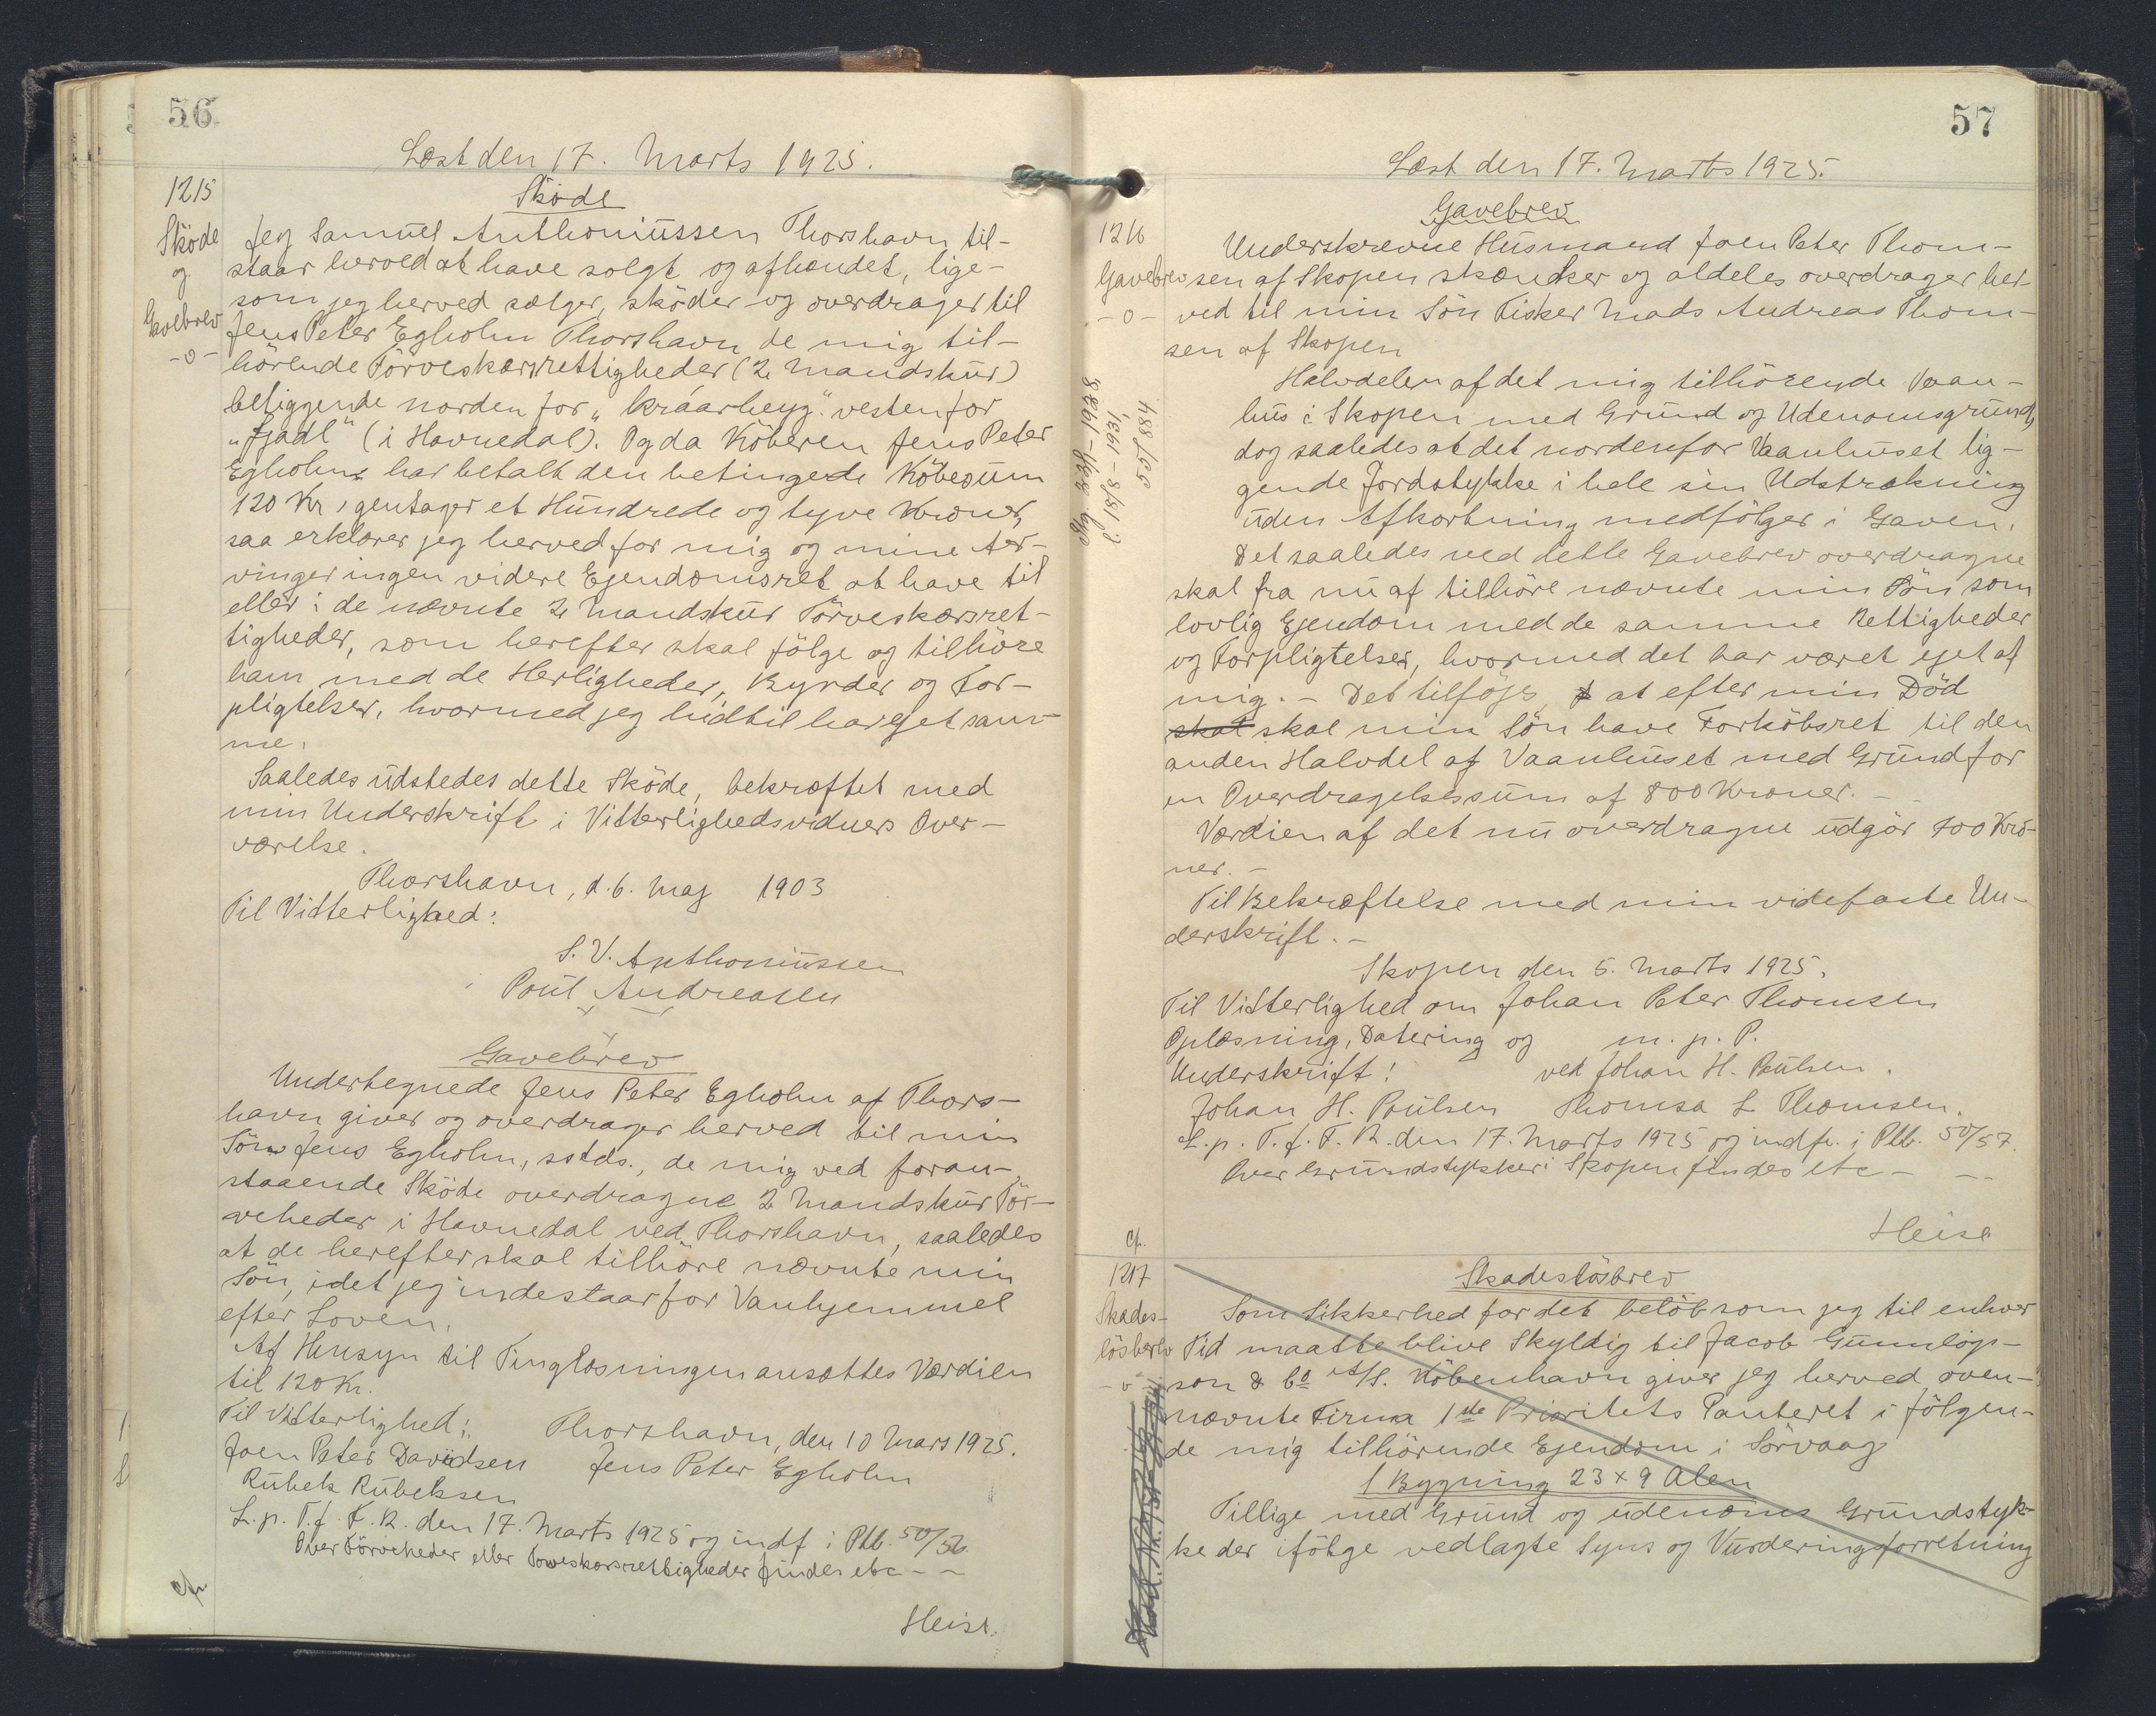 56
Læst den 17. Marts 1925.
1215
Sköde
og
Gavebrev
-o-
Sköde
Jeg Samuel Anthoniussen Thorshavn til-
staar herved at have solgt og afhændet, lige-
som jeg herved sælger, sköder og overdrager til
Jens Peter Egholm Thorshavn de mig til-
hörende Törveskærsrettigheder (2 Mandskur)
beliggende norden for „Kráarheyg“ vesten for
„Fjadl“ (i Havnedal). Og da Köberen Jens Peter
Egholm har betalt den betingede Köbesum
120 Kr, gentager et Hundrede og tyve Kroner,
saa erklærer jeg herved for mig og mine Ar-
vinger ingen videre Ejendomsret at have til
eller i de nævnte 2 Mandskur Törveskærsret-
tigheder, som herefter skal fölge og tilhöre
ham med de Herligheder, Byrder og For-
pligtelser, hvormed jeg hidtil har ejet sam-
me.
Saaledes udstedes dette Sköde, bekræftet med
min Underskrift i Vitterlighedsvidners Over-
værelse.
Thorshavn, d. 6. Maj 1903
Til Vitterlighed:
S. V. Anthoniussen
Poul Andreasen
Gavebrev
Undertegnede Jens Peter Egholm af Thors-
havn giver og overdrager herved til min
Sön Jens Egholm, sstds., de mig ved foran-
staaende Sköde overdragne 2 Mandskur Tör-
veheder i Havnedal ved Thorshavn, saaledes
at de herefter skal tilhöre nævnte min
Sön, idet jeg indestaar for Vanhjemmel
efter Loven.
Af Hensyn til Tinglæsningen ansættes Værdien
til 120 Kr.
Til Vitterlighed: Thorshavn, den 10 Mars 1925.
Joen Peter Davidsen Jens Peter Egholm
Rubek Rubeksen
L. p. T. f. F. R. den 17. Marts 1925 og indf. i Ptb. 50/56.
Over Törveheder eller Törveskærsrettigheder findes etc - -
cf.
Heise.
57
Læst den 17. Marts 1925.
1216
Gavebrev
-o-
Gavebrev
Underskrevne Husmand Joen Peter Thom-
sen af Skopen skænker og aldeles overdrager her-
ved til min Sön Fisker Mads Andreas Thom-
sen af Skopen
Halvdelen af det mig tilhörende Vaan-
hus i Skopen med Grund og Udenomsgrund,
dog saaledes at det nordenfor Vaanhuset lig-
gende Jordstykke i hele sin Udstrækning
uden Afkortning medfölger i Gaven.
Det saaledes ved dette Gavebrev overdragne
skal fra nu af tilhöre nævnte min Sön som
lovlig Ejendom med de samme Rettigheder
og Forpligtelser, hvormed det har været ejet af
mig. - Det tilföjes, at efter min Död
skal skal min Sön have Forköbsret til den
anden Halvdel af Vaanhuset med Grund for
en Overdragelsessum af 800 Kroner. -
Værdien af det nu overdragne udgör 700 Kro-
ner. -
Til Bekræftelse med min videfaste Un-
derskrift. -
Skopen den 5. Marts 1925.
Til Vitterlighed om Johan Peter Thomsen
Oplæsning, Datering og m. p. P.
Underskrift: ved Johan H. Poulsen.
Johan H. Poulsen Thomsa L Thomsen.
L. p. T. f. F. R. den 17. Marts 1925 og indf. i Ptb. 50/57.
Over Grundstykker i Skopen findes etc - --
Heise
cf.
1217
Skades-
lösbrev
-o-
Skadeslösbrev
Som Sikkerhed for det belöb som jeg til enhver
Tid maatte blive Skyldig til Jacob Gunnlög-
son & Co A/S. Köbenhavn giver jeg herved oven-
nævnte Firma 1ste Prioritets Panteret i fölgen-
de mig tilhörende Ejendom i Sörvaag
1 Bygning 23 x 9 Alen
Tillige med Grund og udenoms Grundstyk-
ke der ifölge vedlagte Syns og Vurderingsforretning